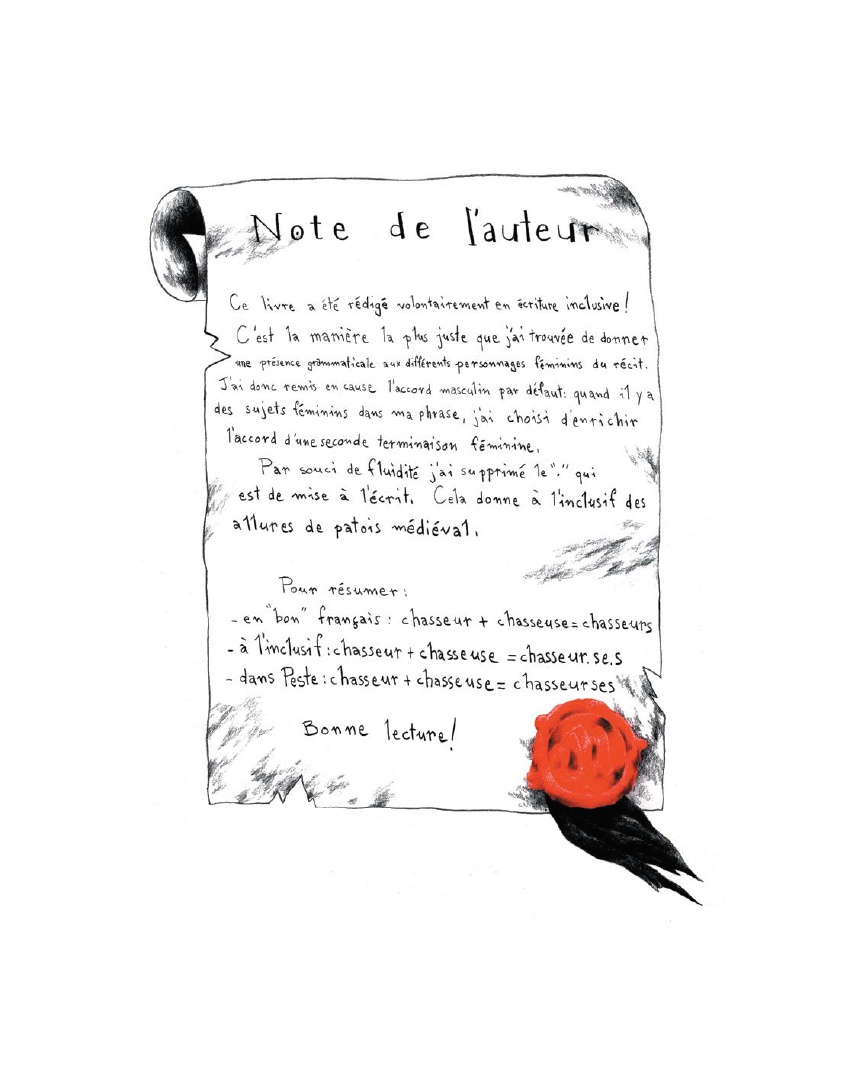 Note de l'auteur
Ce livre a été rédigé volontairement en écriture inclusive!
C'est la manière la plus juste que j'ai trouvée de donner
une présence grammaticale aux différents personnages féminins du récit.
J'ai donc remis en cause l'accord masculin par défaut: quand il y a
des sujets féminins dans ma phrase, j'ai choisi d'enrichir
l'accord d'une seconde terminaison féminine.
Par souci de fluidité j'ai supprimé le "." qui
est de mise à l'écrit. Cela donne à l'inclusif des
allures de patois médiéval.
Pour résumer:
- en "bon" français : chasseur + chasseuse = chasseurs
- à l'inclusif : chasseur + chasseuse = chasseur.se.s
- dans Peste : chasseur + chasseuse = chasseurses
Bonne lecture!